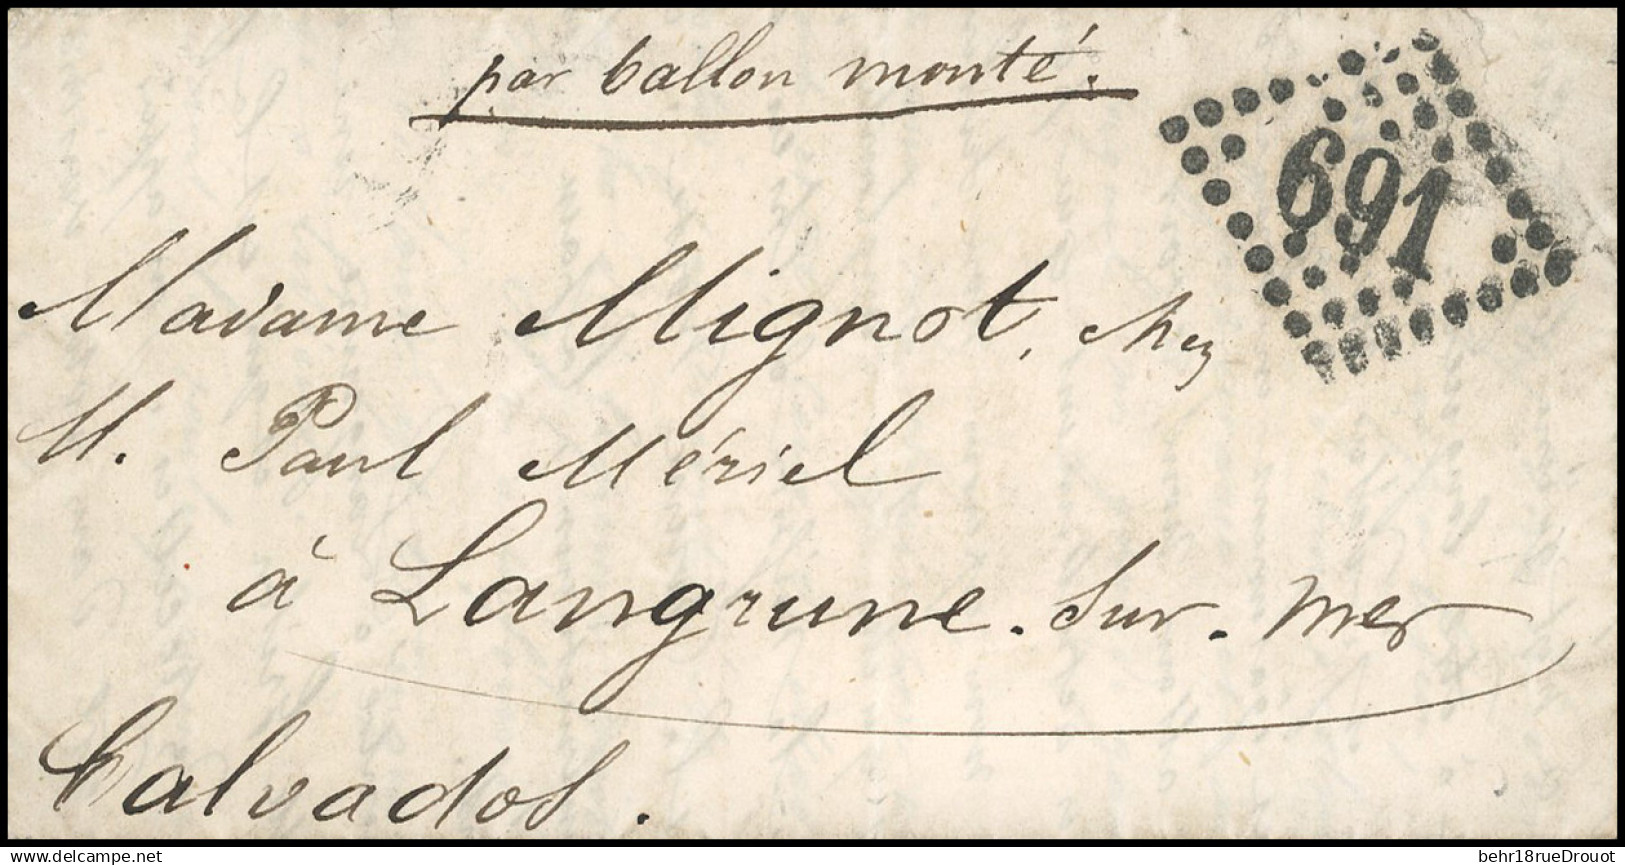 par ballon monté.
691
Madame Mignot, chez
M. Paul Mériel
à Langrune. sur. mer
Calvados.
delcampe.net
behr18rueDrouot